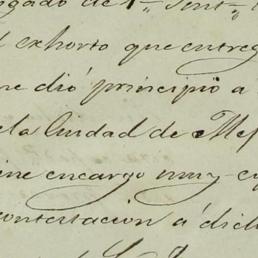 gado de 1ª Inst
l exhorto que entreg
ne dió principio a
la Ciudad de Mej
ine encargo muy e
contestacion a dich